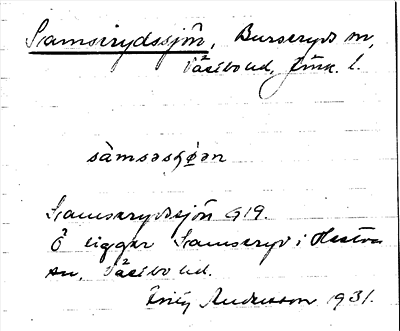 Samserydssjön, Burseryds sn,
Västbo hd, Jönk. l.
sàmsəsʃøən
Samserydssjön G19.
Ö ligger Samseryd i Hestra
sn, Västbo hd.
Andersson 1931.